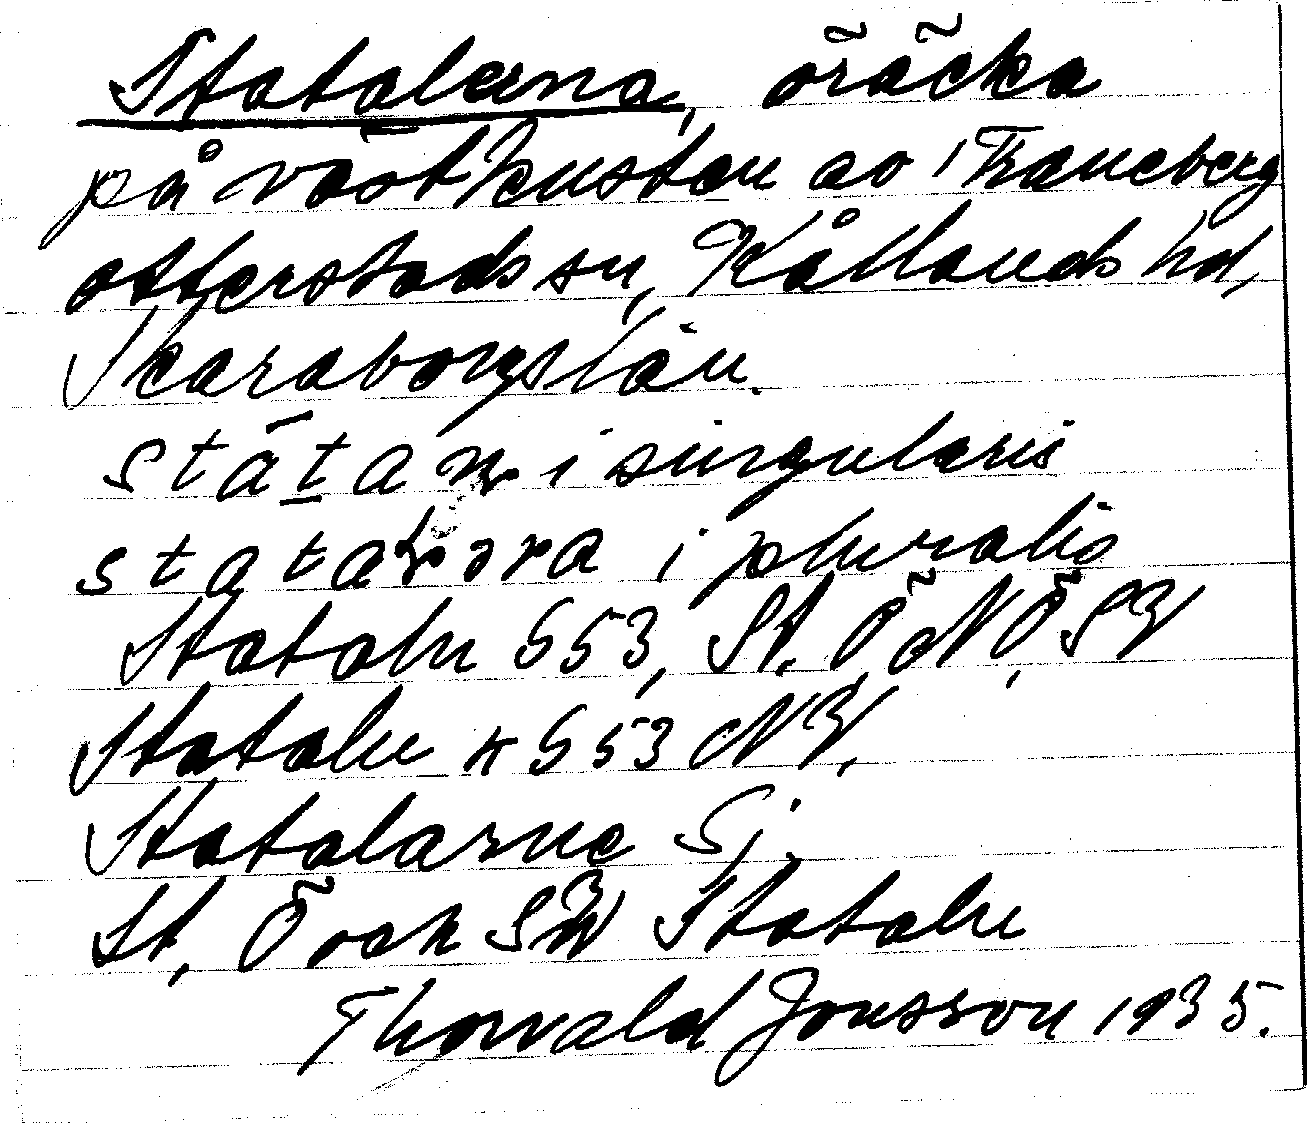 Statalerna, öräcka
på västkusten av Traneberg
otterstads sn, Kållands hd,
Skaraborgs län.
státan i singularis
i pluralis
Statale 553, St. Ö, N, Ö SV
Statale × 553 NV,
Statalarne Sj.
St, Ö och SV Statale
Thorvald Jonsson 1935.